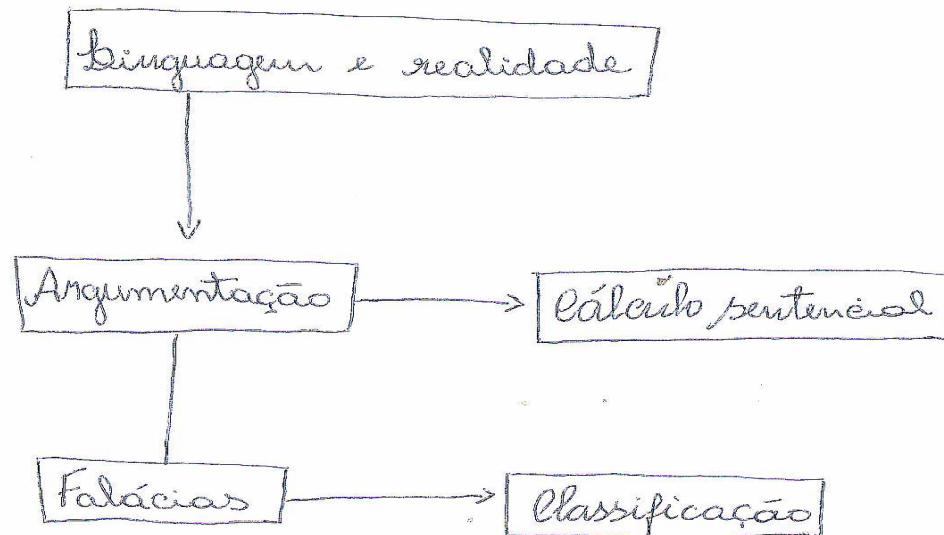 Linguagem e realidade
Argumentação
Cálculo sentencial
Falácias
Classificação